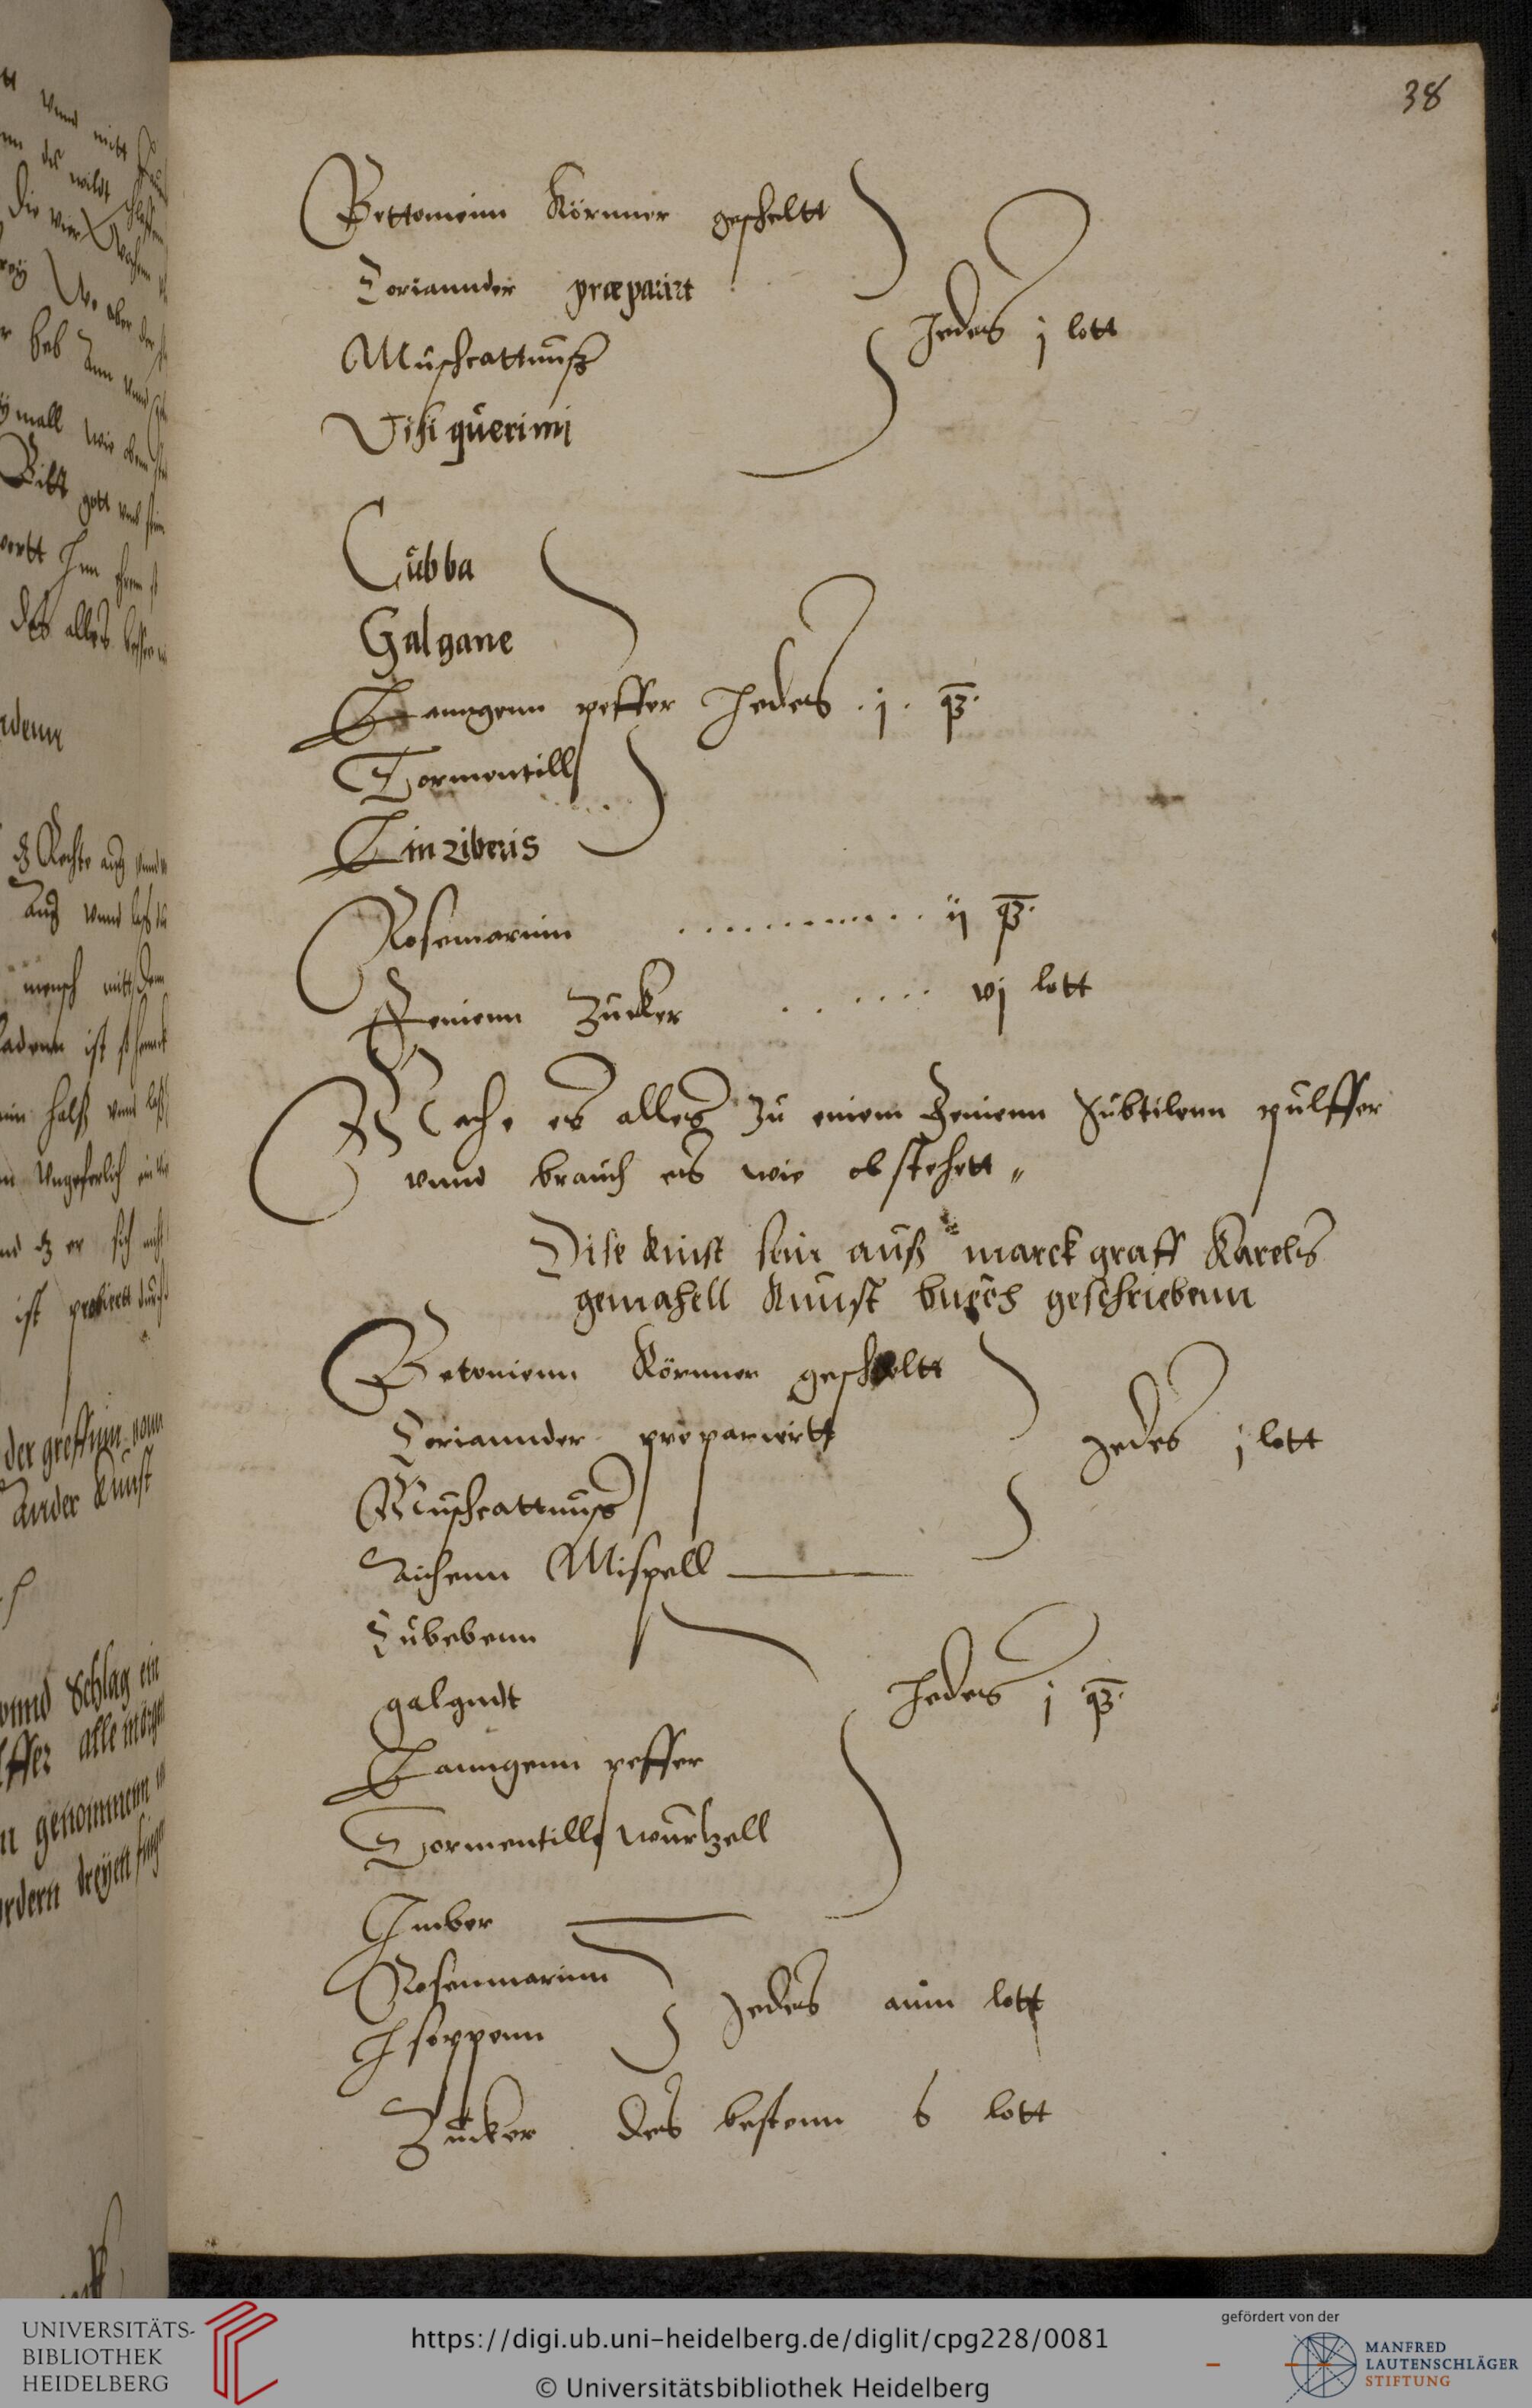 38
Bettoninn Körnner gescheltt
Coriannder præparirt
Muscattnuß
Jedes j lott
Visi querimi
Cubba
Galgane
Lanngenn peffer Jedes . j . q̄ꝫ.
Tormentill
Zinziberis
Rosemarinn ............ ij q̄ꝫ.
Feinenn Zucker ...... vj lott
Mache es alles zu einem Feinenn Subtilenn pulffer
vnnd brauch es wie obstehett „
Dise kunst sein auß marck graff Karels
gemahell kunst buech geschriebenn
Betonienn Körnner gescheltt
Coriannder prepariertt
Jedes j lott
Muscattnuß
Aichenn Mispell
Cubebenn
galgndt
Jedes j q̄ꝫ.
Lanngenn peffer
Tormentill wurtzell
Imber
Rosenmarinn
Jedes ainn lott
Isoppenn
Zucker des bestenn 6 lott
UNIVERSITÄTS-
BIBLIOTHEK
HEIDELBERG
https://digi.ub.uni-heidelberg.de/diglit/cpg228/0081
© Universitätsbibliothek Heidelberg
gefördert von der
MANFRED
LAUTENSCHLÄGER
STIFTUNG